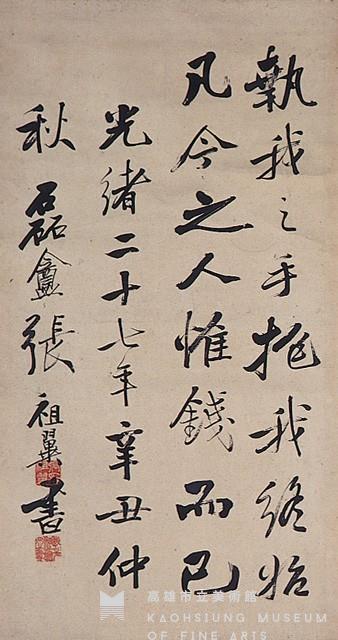 執我之手拖我終始
凡今之人惟錢而已
光緒二十七年辛丑仲
秋磊盦張祖翼書
高雄市立美術館
KAOHSIUNG MUSEUM
OF FINE ARTS